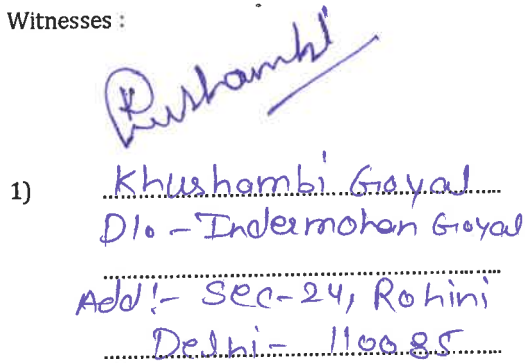 Witnesses :
Khushambi
1) Khushambi Goyal
D/o - Indermohan Goyal
Add:- Sec-24, Rohini
Delhi - 110085